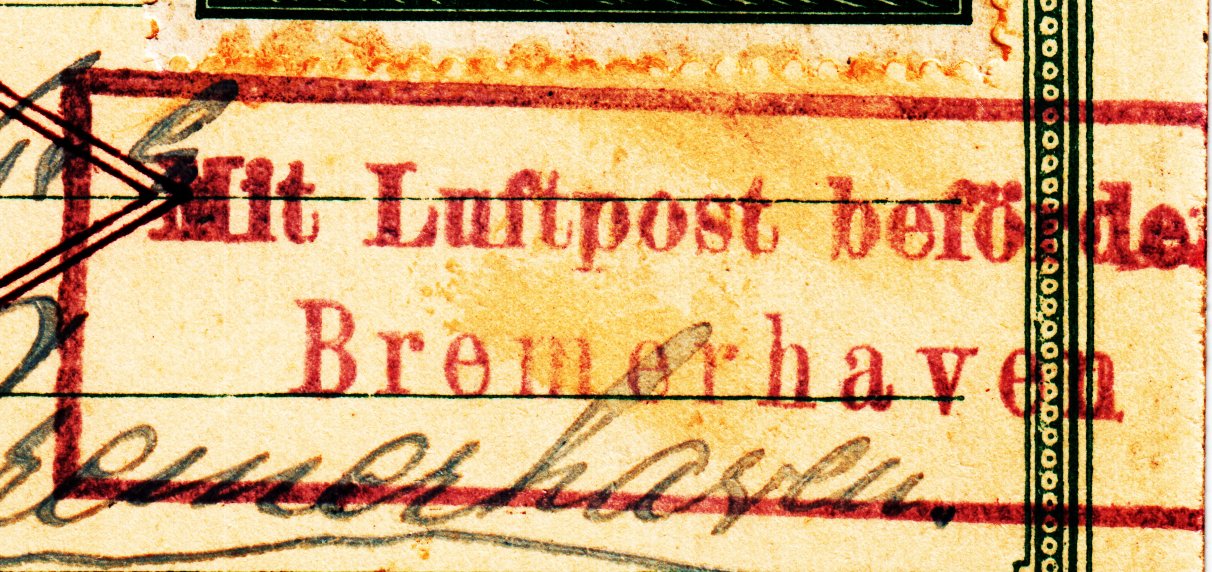 Mit Luftpost beförde
Bremerhaven
remerhaven.